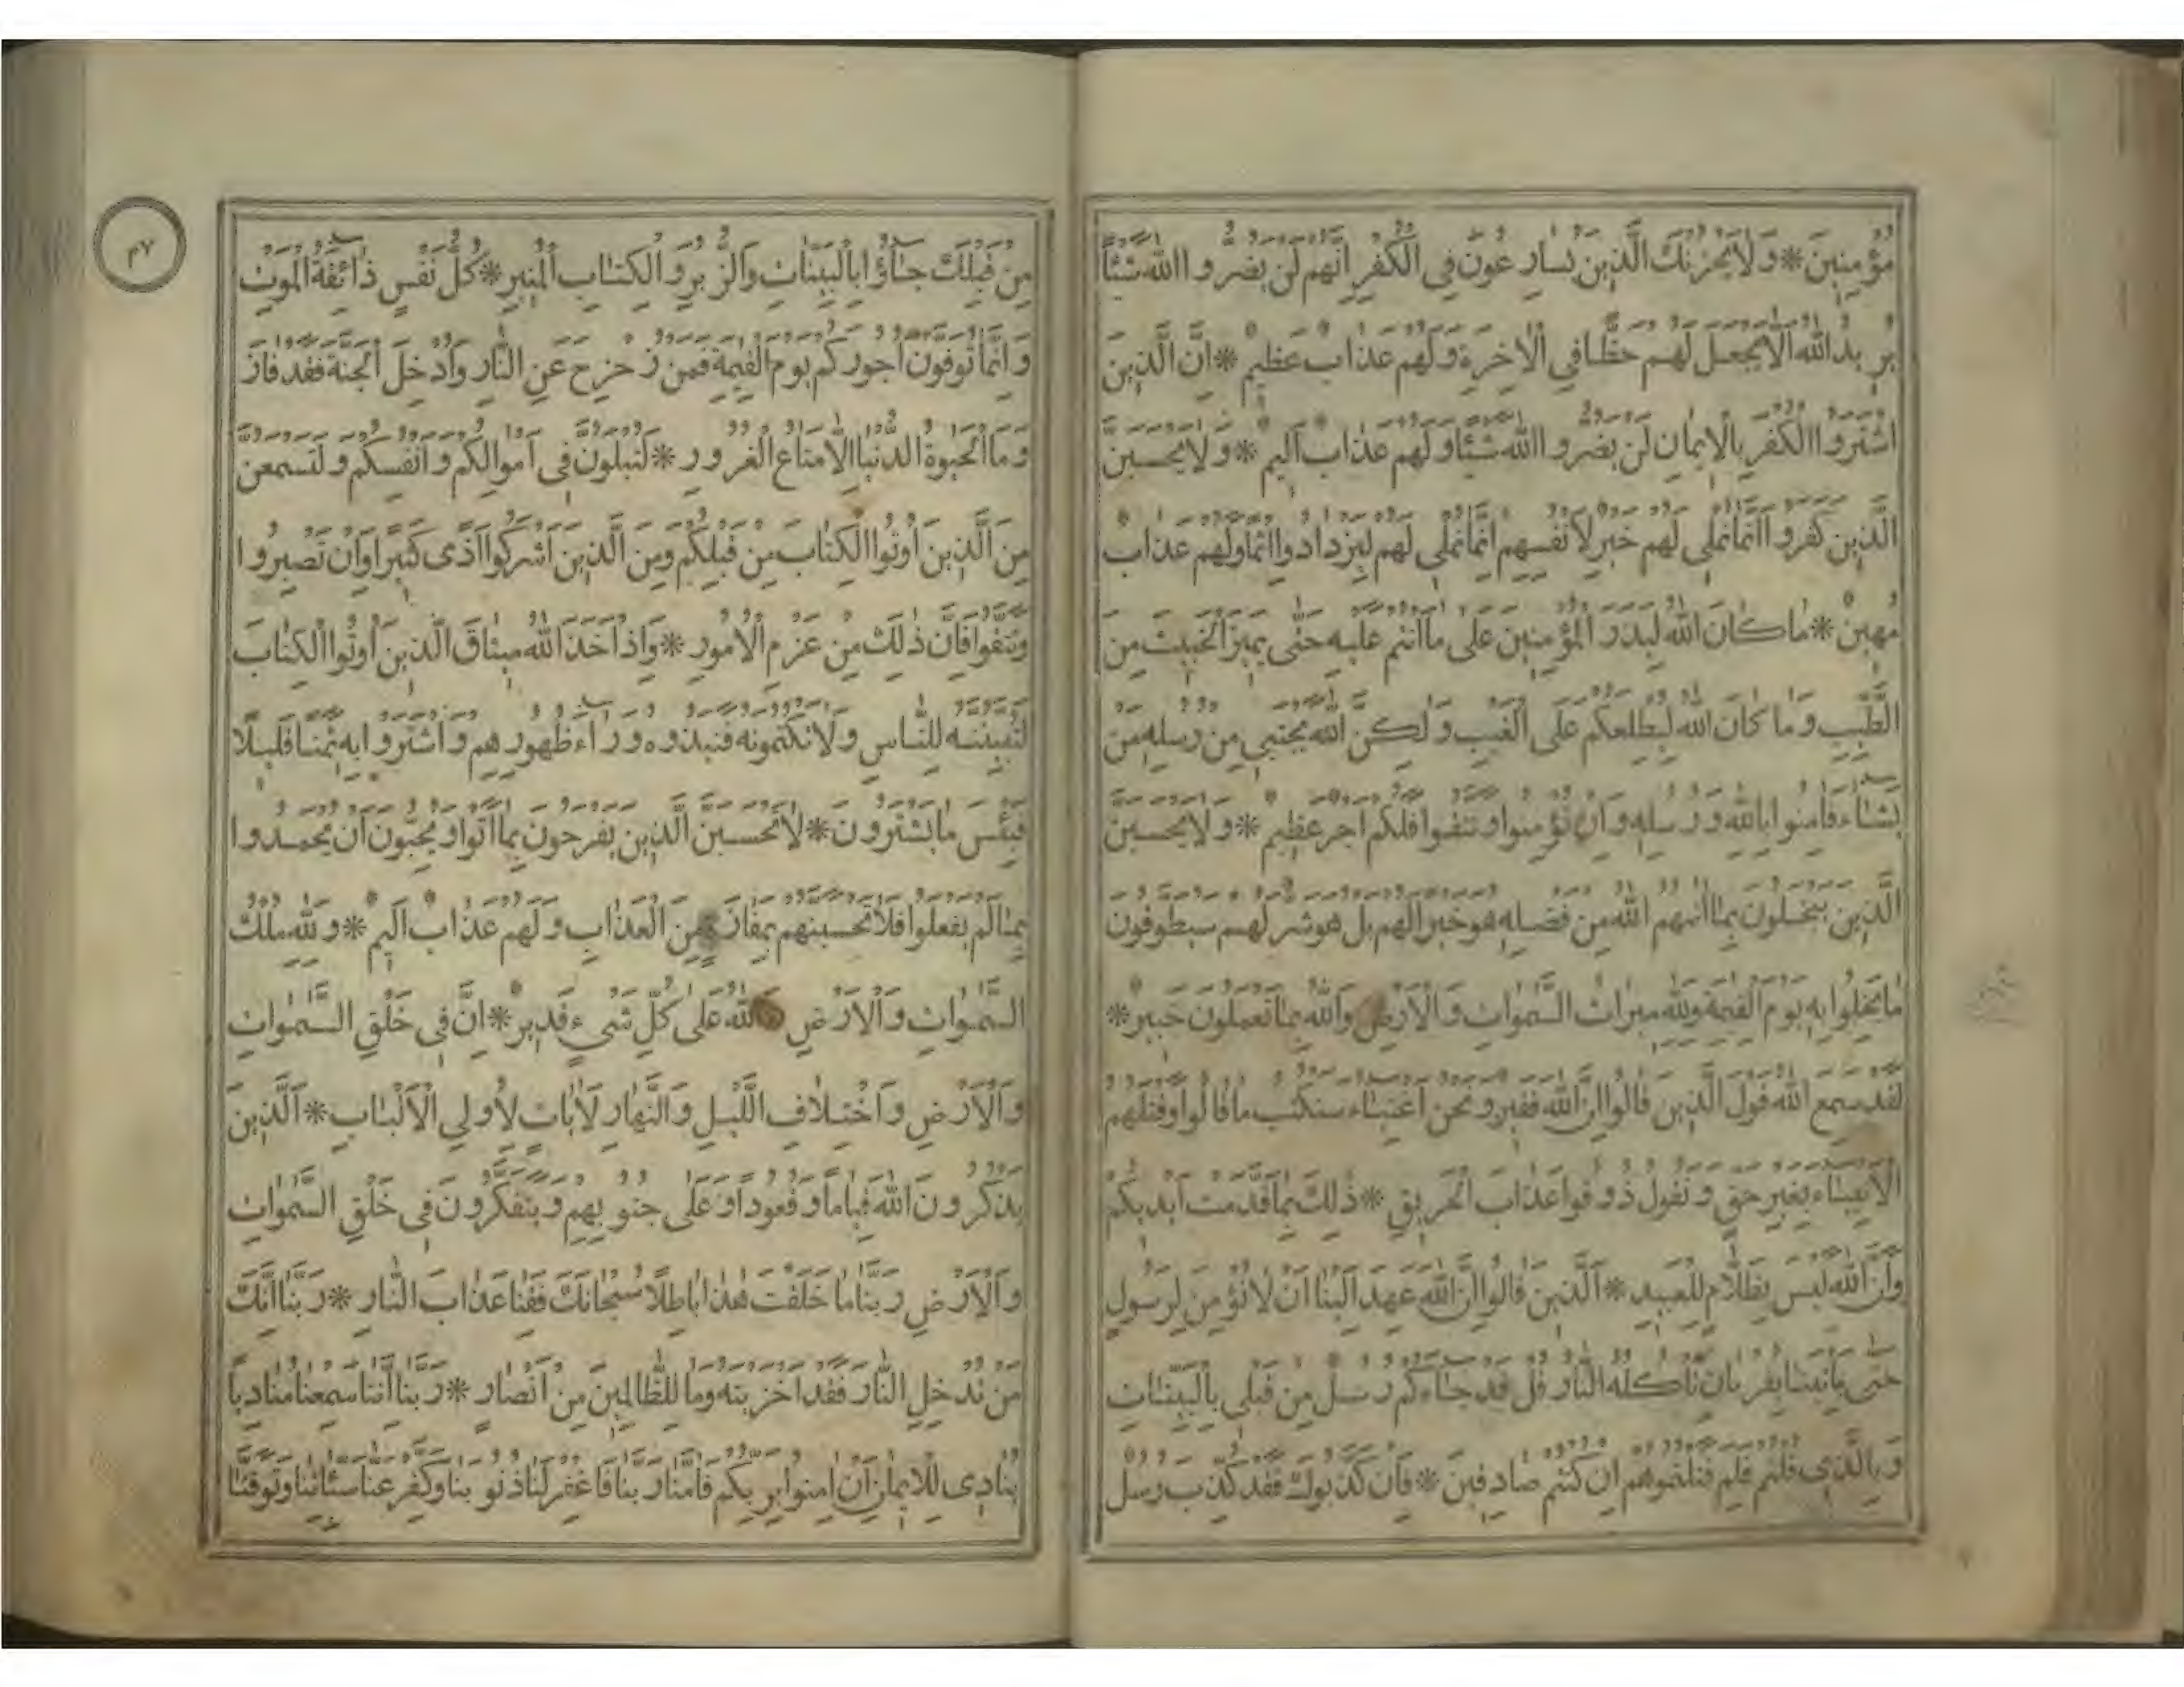 مُؤْمِنِينَ * وَلَا يَحْزُنْكَ الَّذِينَ يُسَارِعُونَ فِي الْكُفْرِ إِنَّهُمْ لَنْ يَضُرُّوا اللهَ شَيْئًا
يُرِيدُ اللهُ أَلَّا يَجْعَلَ لَهُمْ حَظًّا فِي الْآخِرَةِ وَلَهُمْ عَذَابٌ عَظِيمٌ * إِنَّ الَّذِينَ
اشْتَرَوُا الْكُفْرَ بِالْإِيمَانِ لَنْ يَضُرُّوا اللهَ شَيْئًا وَلَهُمْ عَذَابٌ أَلِيمٌ * وَلَا يَحْسَبَنَّ
الَّذِينَ كَفَرُوا أَنَّمَا نُمْلِي لَهُمْ خَيْرٌ لِأَنْفُسِهِمْ إِنَّمَا نُمْلِي لَهُمْ لِيَزْدَادُوا إِثْمًا وَلَهُمْ عَذَابٌ
مُهِينٌ * مَا كَانَ اللهُ لِيَذَرَ الْمُؤْمِنِينَ عَلَى مَا أَنْتُمْ عَلَيْهِ حَتَّى يَمِيزَ الْخَبِيثَ مِنَ
الطَّيِّبِ وَمَا كَانَ اللهُ لِيُطْلِعَكُمْ عَلَى الْغَيْبِ وَلَكِنَّ اللهَ يَجْتَبِي مِنْ رُسُلِهِ مَنْ
يَشَاءُ فَآمِنُوا بِاللهِ وَرُسُلِهِ وَإِنْ تُؤْمِنُوا وَتَتَّقُوا فَلَكُمْ أَجْرٌ عَظِيمٌ * وَلَا يَحْسَبَنَّ
الَّذِينَ يَبْخَلُونَ بِمَا آتَيهُمُ اللهُ مِنْ فَضْلِهِ هُوَ خَيْرًا لَهُمْ بَلْ هُوَ شَرٌّ لَهُمْ سَيُطَوَّقُونَ
مَا بَخِلُوا بِهِ يَوْمَ الْقِيمَةِ وَلِلهِ مِيرَاثُ السَّمَوَاتِ وَالْأَرْضِ وَاللهُ بِمَا تَعْمَلُونَ خَبِيرٌ *
لَقَدْ سَمِعَ اللهُ قَوْلَ الَّذِينَ قَالُوا إِنَّ اللهَ فَقِيرٌ وَنَحْنُ أَغْنِيَاءُ سَنَكْتُبُ مَا قَالُوا وَقَتْلَهُمُ
الْأَنْبِيَاءَ بِغَيْرِ حَقٍّ وَنَقُولُ ذُوقُوا عَذَابَ الْحَرِيقِ * ذَلِكَ بِمَا قَدَّمَتْ أَيْدِيكُمْ
وَأَنَّ اللهَ لَيْسَ بِظَلَّامٍ لِلْعَبِيدِ * الَّذِينَ قَالُوا إِنَّ اللهَ عَهِدَ إِلَيْنَا أَنْ لَا نُؤْمِنَ لِرَسُولٍ
حَتَّى يَأْتِيَنَا بِقُرْبَانٍ تَأْكُلُهُ النَّارُ قُلْ قَدْ جَاءَكُمْ رُسُلٌ مِنْ قَبْلِي بِالْبَيِّنَاتِ
وَبِالَّذِي قُلْتُمْ فَلِمَ قَتَلْتُمُوهُمْ إِنْ كُنْتُمْ صَادِقِينَ * فَإِنْ كَذَّبُوكَ فَقَدْ كُذِّبَ رُسُلٌ
مِنْ قَبْلِكَ جَاؤُا بِالْبَيِّنَاتِ وَالزُّبُرِ وَالْكِتَابِ الْمُنِيرِ * كُلُّ نَفْسٍ ذَائِقَةُ الْمَوْتِ
وَإِنَّمَا تُوَفَّوْنَ أُجُورَكُمْ يَوْمَ الْقِيمَةِ فَمَنْ زُحْزِحَ عَنِ النَّارِ وَأُدْخِلَ الْجَنَّةَ فَقَدْ فَازَ
وَمَا الْحَيَوةُ الدُّنْيَا إِلَّا مَتَاعُ الْغُرُورِ * لَتُبْلَوُنَّ فِي أَمْوَالِكُمْ وَأَنْفُسِكُمْ وَلَتَسْمَعُنَّ
مِنَ الَّذِينَ أُوتُوا الْكِتَابَ مِنْ قَبْلِكُمْ وَمِنَ الَّذِينَ أَشْرَكُوا أَذًى كَثِيرًا وَإِنْ تَصْبِرُوا
وَتَتَّقُوا فَإِنَّ ذَلِكَ مِنْ عَزْمِ الْأُمُورِ * وَإِذْ أَخَذَ اللهُ مِيثَاقَ الَّذِينَ أُوتُوا الْكِتَابَ
لَتُبَيِّنُنَّهُ لِلنَّاسِ وَلَا تَكْتُمُونَهُ فَنَبَذُوهُ وَرَاءَ ظُهُورِهِمْ وَاشْتَرَوْا بِهِ ثَمَنًا قَلِيلًا
فَبِئْسَ مَا يَشْتَرُونَ * لَا تَحْسَبَنَّ الَّذِينَ يَفْرَحُونَ بِمَا أَتَوْا وَيُحِبُّونَ أَنْ يُحْمَدُوا
بِمَا لَمْ يَفْعَلُوا فَلَا تَحْسَبَنَّهُمْ بِمَفَازَةٍ مِنَ الْعَذَابِ وَلَهُمْ عَذَابٌ أَلِيمٌ * وَلِلهِ مُلْكُ
السَّمَوَاتِ وَالْأَرْضِ وَاللهُ عَلَى كُلِّ شَيْءٍ قَدِيرٌ * إِنَّ فِي خَلْقِ السَّمَوَاتِ
وَالْأَرْضِ وَاخْتِلَافِ اللَّيْلِ وَالنَّهَارِ لَآيَاتٍ لِأُولِي الْأَلْبَابِ * الَّذِينَ
يَذْكُرُونَ اللهَ قِيَامًا وَقُعُودًا وَعَلَى جُنُوبِهِمْ وَيَتَفَكَّرُونَ فِي خَلْقِ السَّمَوَاتِ
وَالْأَرْضِ رَبَّنَا مَا خَلَقْتَ هَذَا بَاطِلًا سُبْحَانَكَ فَقِنَا عَذَابَ النَّارِ * رَبَّنَا إِنَّكَ
مَنْ تُدْخِلِ النَّارَ فَقَدْ أَخْزَيْتَهُ وَمَا لِلظَّالِمِينَ مِنْ أَنْصَارٍ * رَبَّنَا إِنَّنَا سَمِعْنَا مُنَادِيًا
يُنَادِي لِلْإِيمَانِ أَنْ آمِنُوا بِرَبِّكُمْ فَآمَنَّا رَبَّنَا فَاغْفِرْ لَنَا ذُنُوبَنَا وَكَفِّرْ عَنَّا سَيِّئَاتِنَا وَتَوَفَّنَا